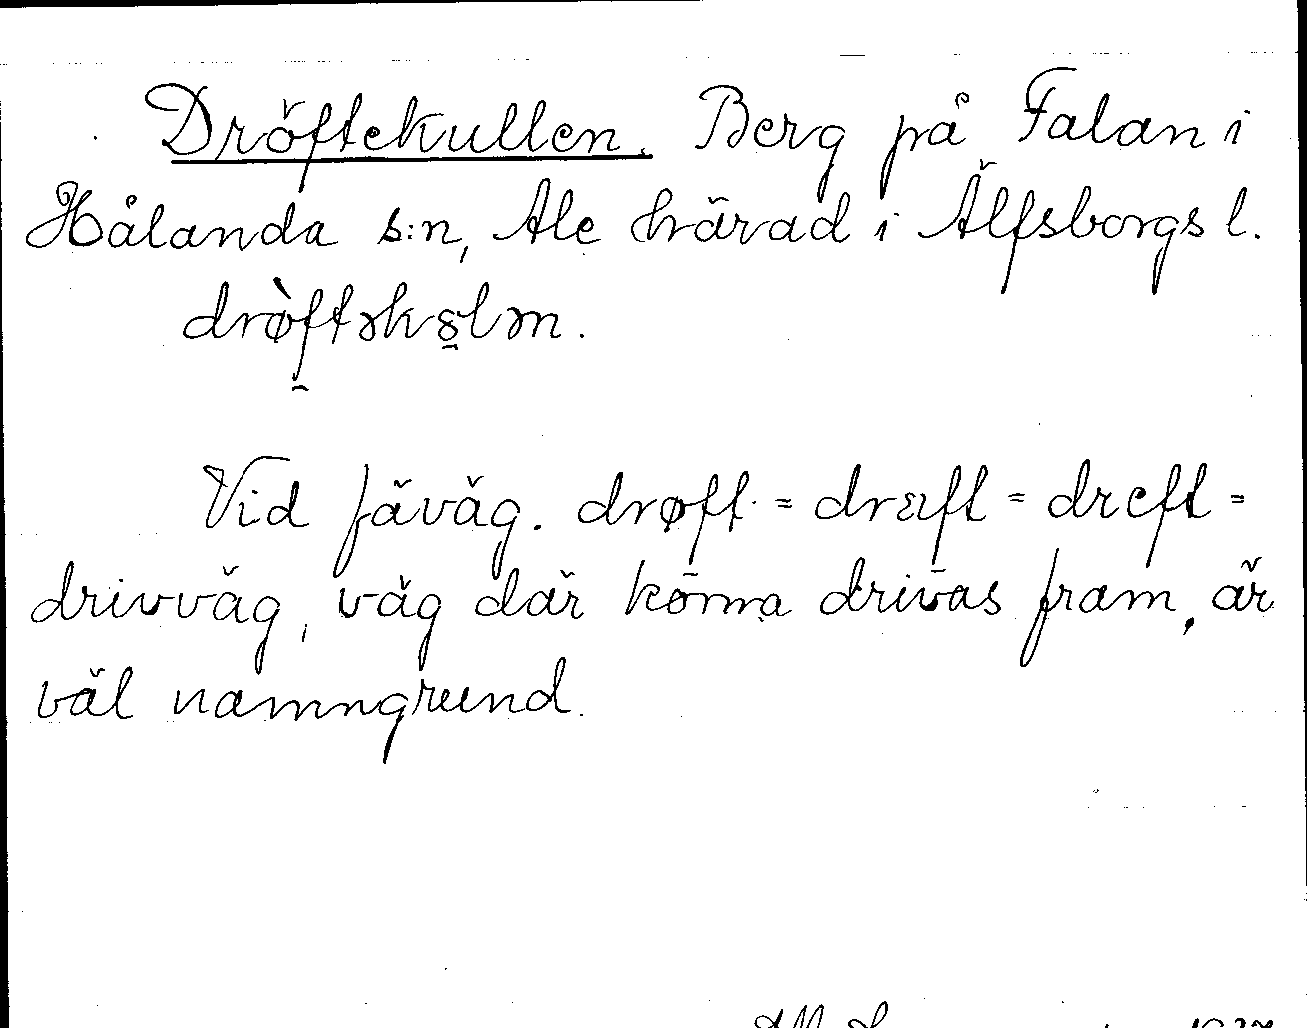 Dröftekullen. Berg på Falan i
Hålanda s:n, Ale härad i Älfsborgs l.
drø̀ftəkꞷlən.
Vid fäväg. drøft = dræft = dreft =
drivväg, väg där korna drivas fram, är
väl namngrund.